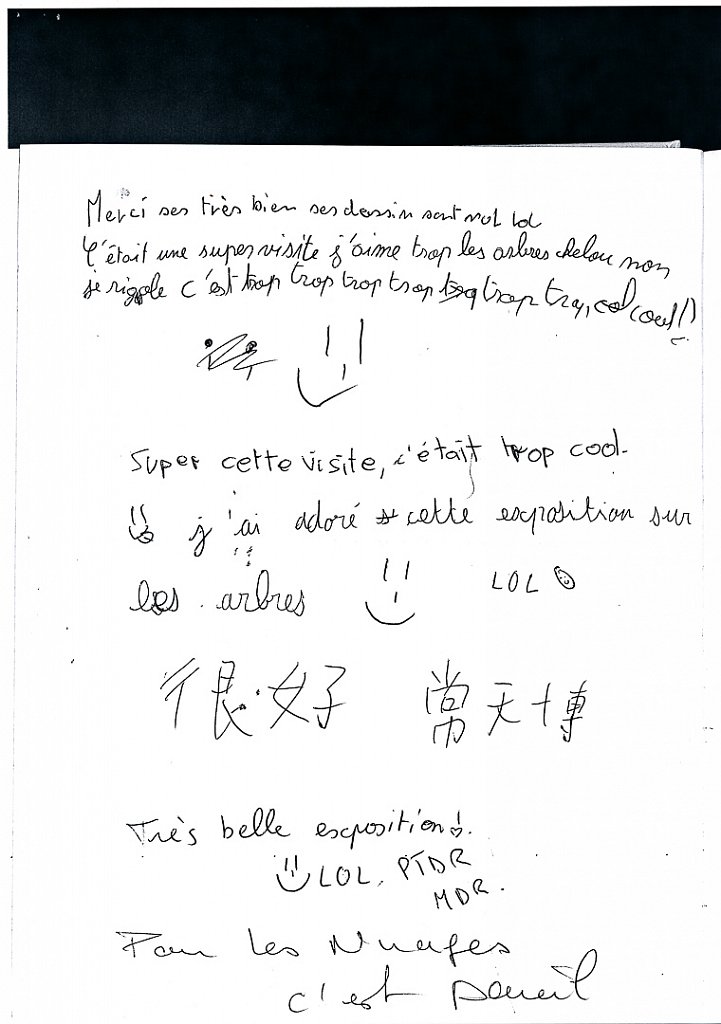 Merci ses très bien ses dessin sont nul lol
C'était une super visite j'aime trop les arbres delou non
je rigole c'est trop trop trop trop trop trop trop, cool cool!!
Super cette visite, c'était trop cool.
j'ai adoré cette exposition sur
les arbres LOL
很好 常天博
Très belle exposition!
LOL, PTDR
MDR.
Pour les Nuages
c'est pareil